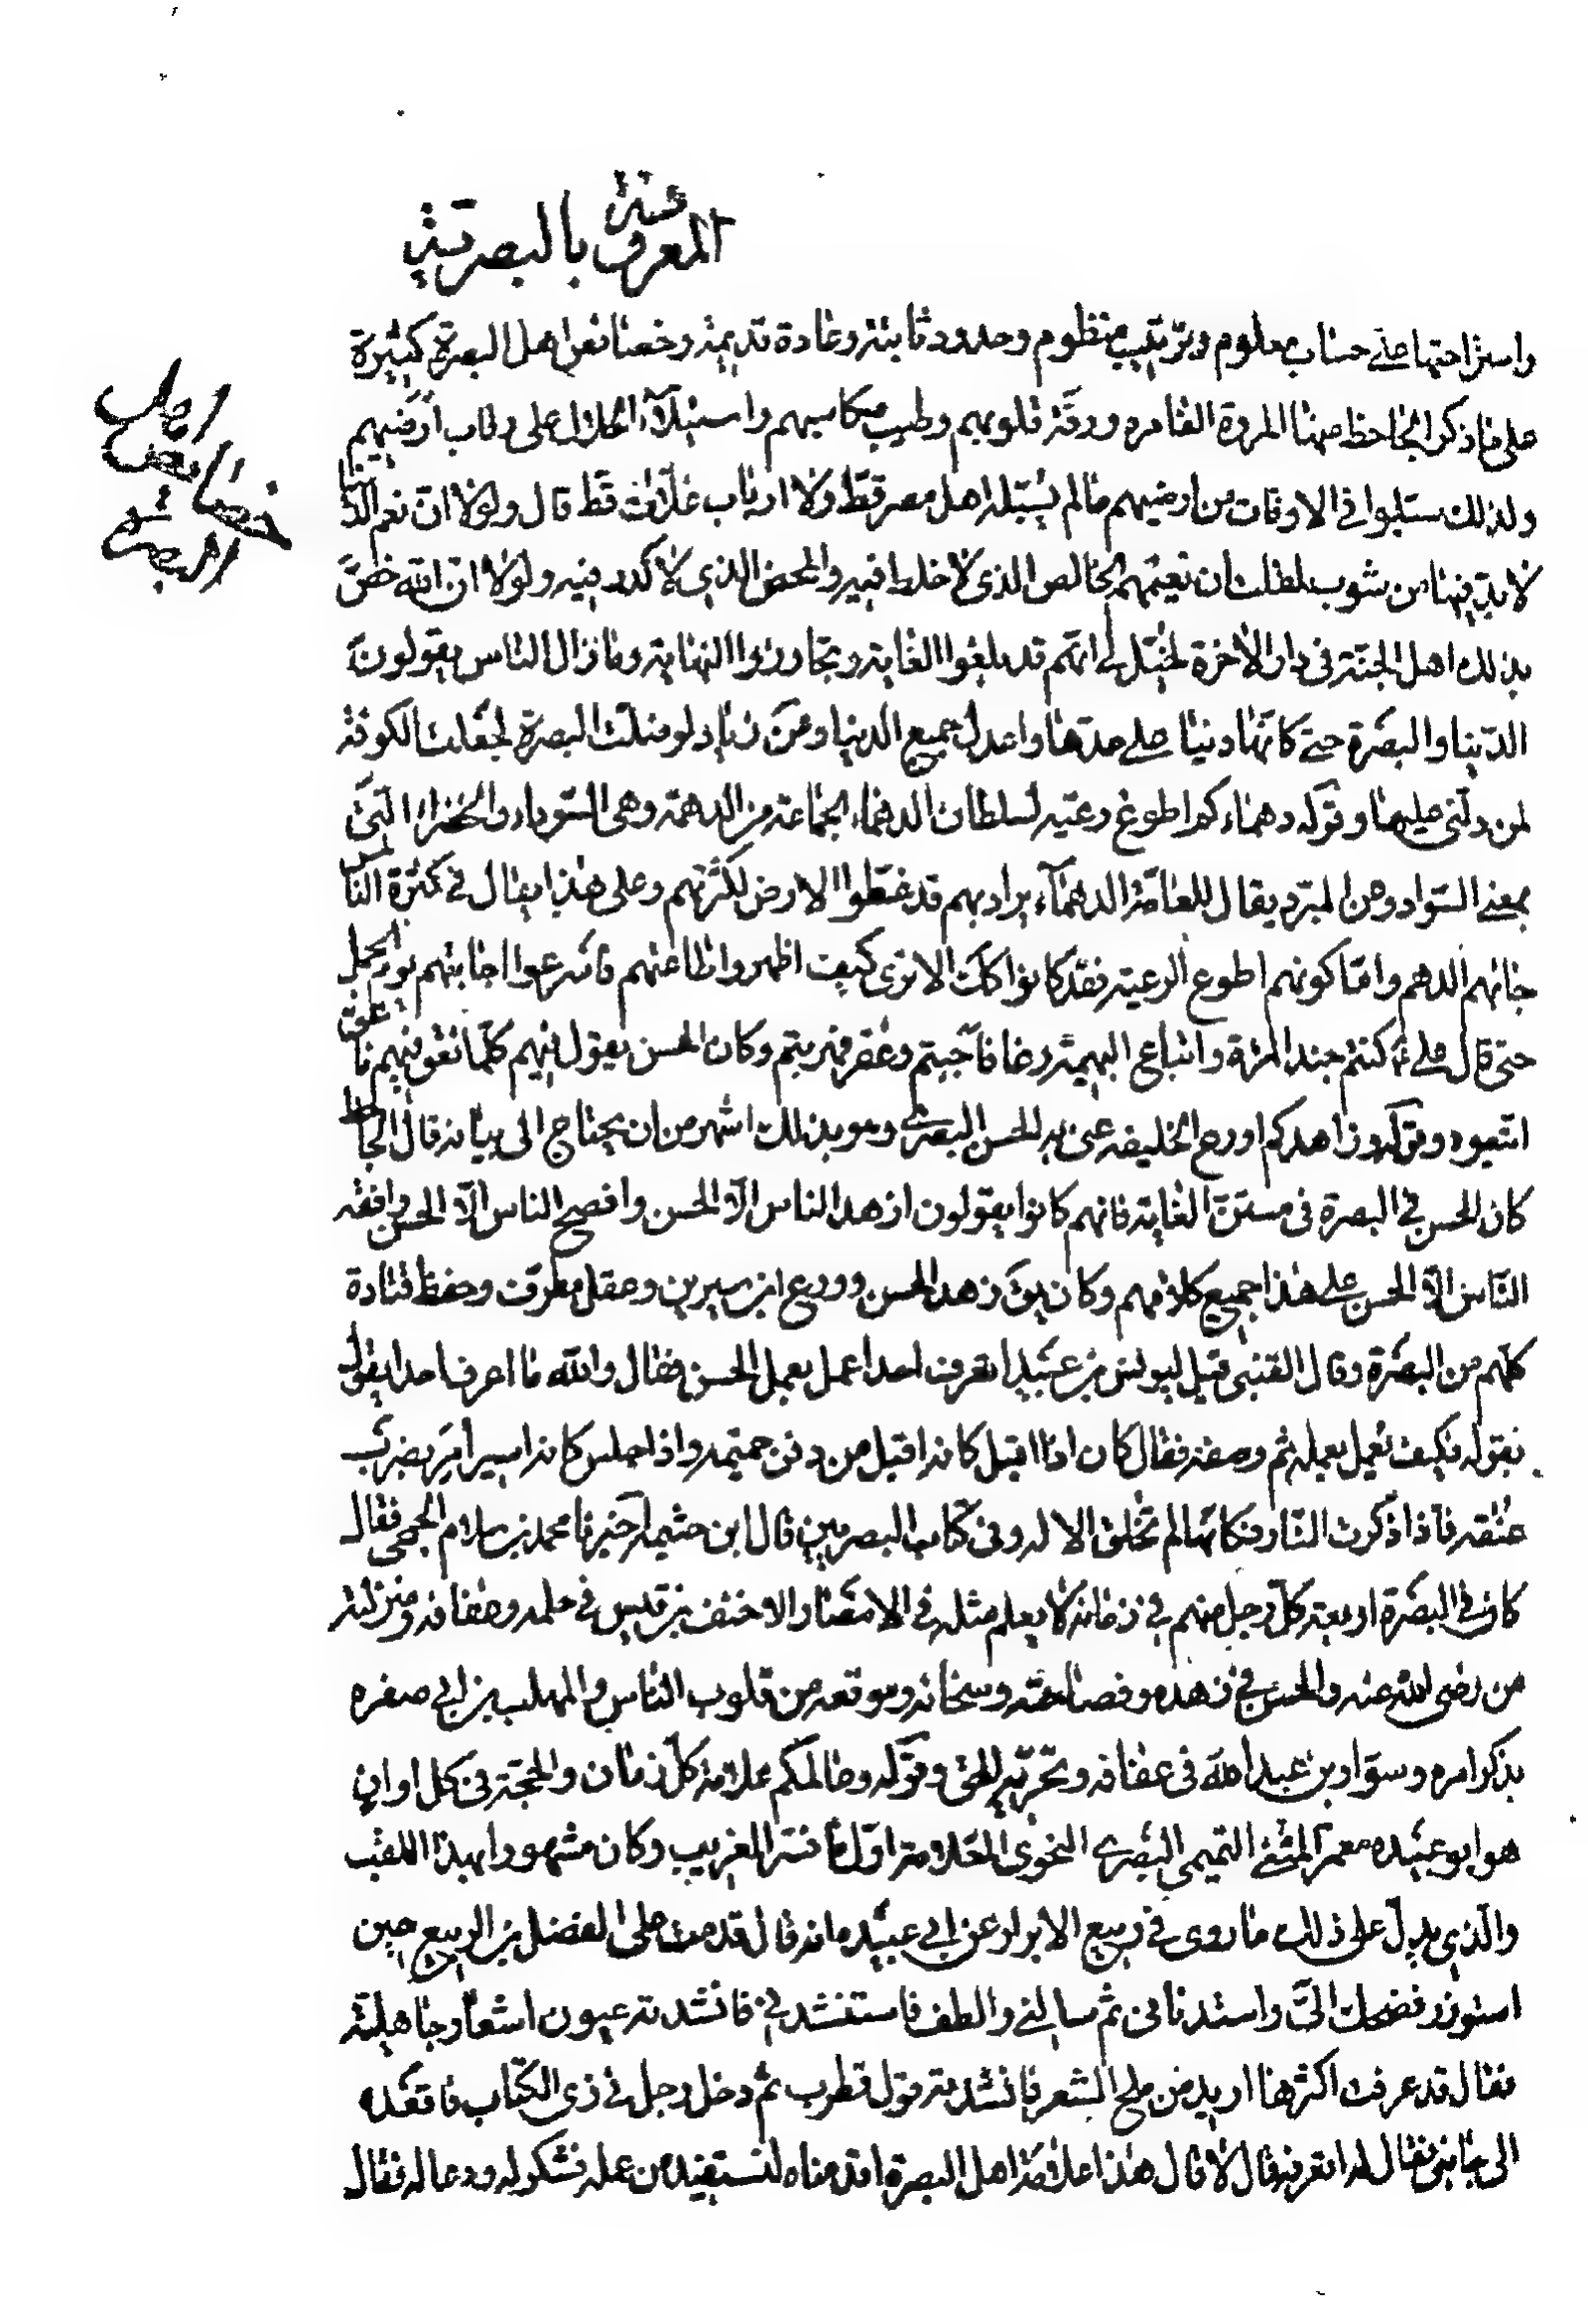 المعروفة بالبصرية
واستراحتها على حساب معلوم وترتيب منظوم وحدود ثابتة وعادة قديمة وخصائص اهل البصرة كثيرة
على ما ذكر الجاحظ منها المروة الظاهره ورقة قلوبهم وطيب مكاسبهم واستيلاء الحلال على رقاب ارضيهم
ولذلك ستلوا في الاوقات من ارضيهم ما لم يسئله اهل مصر قط ولا ارباب غلات قط قال ولولا ان نعم الدنيا
لا بد فيها من شوب لظلت ان نعيمهم الخالص الذي لا خلط فيه والمحض الذي لا كدر فيه ولولا ان الله خص
بذلك اهل الجنة في دار الاخرة لخيل لي انهم قد بلغوا الغاية وتجاوزوا النهاية وما زال الناس يقولون
الدنيا والبصرة حتى كانها دنيا على حدتها واعدل جميع الدنيا وعن زياد لو ضلت البصرة لجعلت الكوفة
لمن دلني عليها وقوله دهماءكم اطوع رعية لسلطان الدهماء الجماعة من الدهمة وهي السوداء والخضراء التي
بمعنى السواد وعن المبرد يقال للعامة الدهماء يراد بهم قد غطوا الارض لكثرتهم وعلى هذا يقال في كثرة الناس
جاءهم الدهم واما كونهم اطوع الرعية فقد كانوا كك الا ترى كيف اظهروا طاعتهم فاسرعوا اجابتهم يوم الجمل
حتى قال علي كنتم جند المرأة واتباع البهيمة رغا فاجبتم وعقر فهربتم وكان الحسن يقول فيهم كلما نعق فيهم ناعق
اتبعوه وقوله وزاهدكم اورع الخليفه عنى به الحسن البصري وهو بذلك اشهر من ان يحتاج الى بيانه قال الجاحظ
كان الحسن في البصرة في مستن الغاية فانهم كانوا يقولون ازهد الناس الا الحسن وافصح الناس الا الحسن وافقه
الناس الا الحسن على هذا جميع كلامهم وكان يق زهد الحسن وورع ابن سيرين وعقل مطرف وحفظ قتادة
كلهم من البصرة وقال القتبي قيل ليونس بن عبيد اتعرف احدا عمل بعمل الحسن فقال والله ما اعرف احدا يقول
بقوله فكيف يعمل بعمله ثم وصفه فقال كان اذا اقبل كانه اقبل من دفن حميمه واذا جلس كانه اسير امر بضرب
عنقه فاذا ذكرت النار فكانها لم تخلق الا له وفي كتاب البصريين قال ابن خثيمة اخبرنا محمد بن سلام الجمحي فقال
كان في البصرة اربعة كل رجل منهم في زمانه لا يعلم مثله في الامصار الاحنف بن قيس في حلمه وعفافه ومنزلته
من رضي الله عنه والحسن في زهده وفصاحته وسخائه وموقعه من قلوب الناس والمهلب بن ابي صفره
بذكر امره وسوار بن عبد الله في عفافه وتحريه للحق وقوله وعالمكم علامة كل زمان والحجة في كل اوان
هو ابو عبيده معمر المثنى التميمي البصري النحوي العلامة اول مانثر الغريب وكان مشهورا بهذا اللقب
والذي يدل على ذلك ما روى في ربيع الابرار عن ابي عبيده انه قال قدمت على الفضل بن الربيع حين
استوزر فضحك الى واستدناني ثم سالني والطف فاستنشدني فانشدته عيون اشعار جاهلية
فقال قد عرفت اكثرها اريد من ملح الشعر فانشدته قول قطرب ثم دخل رجل في زي الكتاب فاقعده
الى جانبي فقال له اتعرفه قال لا قال هذا علامة اهل البصرة اقدمناه لنستفيد من علمه فشكر له ودعا له فقال